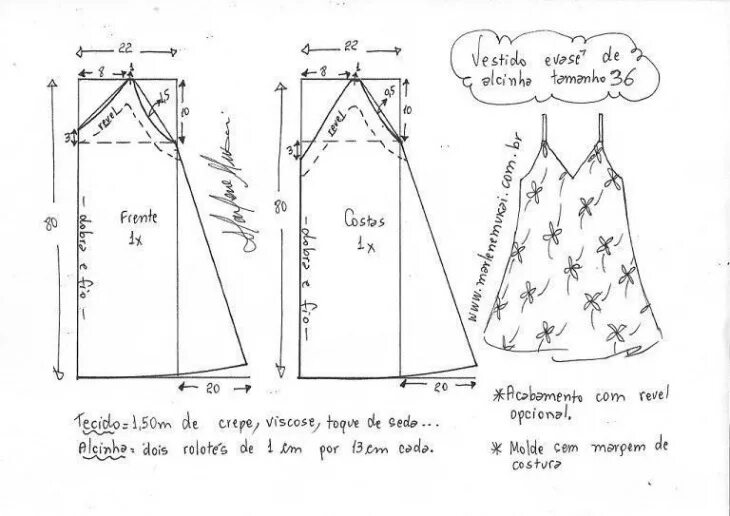 Vestido evasê de
alcinha tamanho 36
22
8
1
1,5
10
revel
3
80
Frente
1x
dobra e fio
20
Marlene Mukai
22
8
1
0,5
10
revel
3
80
Costas
1x
dobra e fio
20
www.marlenemukai.com.br
*Acabamento com revel
opcional.
* Molde sem margem de
costura
Tecido=1,50m de crepe, viscose, toque de seda...
Alcinha= dois rolotês de 1 cm por 13cm cada.